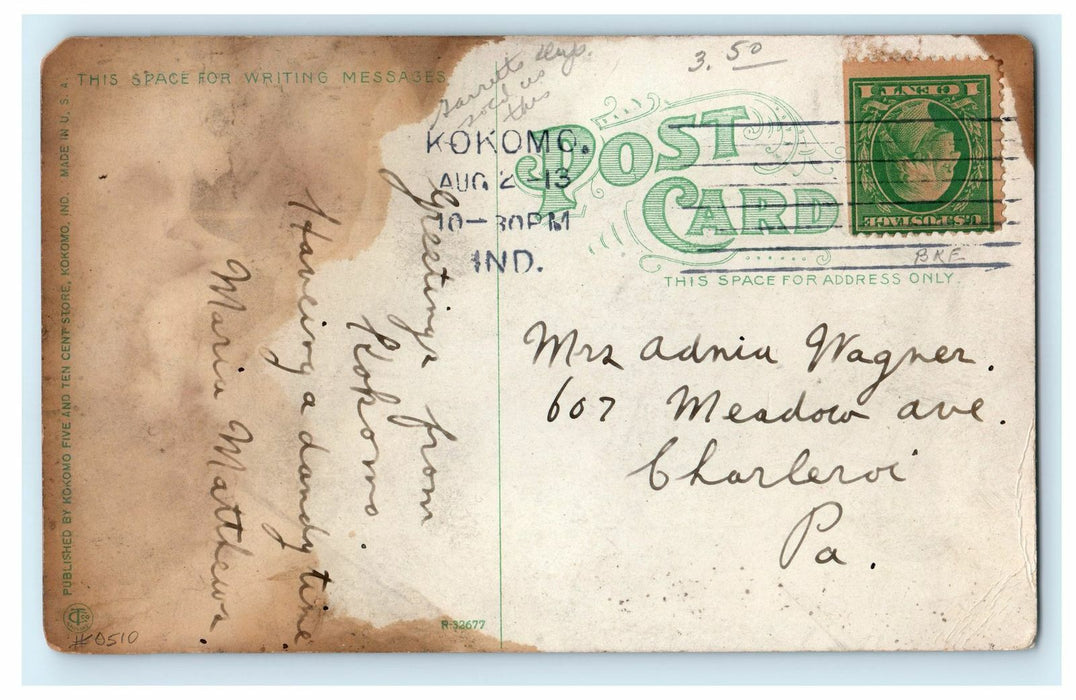 THIS SPACE FOR WRITING MESSAGES
Garretts
sold us
this
3.50
KOKOMO.
AUG 2 -13
10-30PM
IND.
POST
CARD
THIS SPACE FOR ADDRESS ONLY.
1 CENT 1
U.S. POSTAGE
BKF
Greetings from
Kokomo.
Haveing a dandy time.
Maria Matthews.
Mrs Adnia Wagner.
607 Meadow ave.
Charleroi
Pa.
PUBLISHED BY KOKOMO FIVE AND TEN CENT STORE, KOKOMO, IND. MADE IN U. S. A.
R-32677
#0510